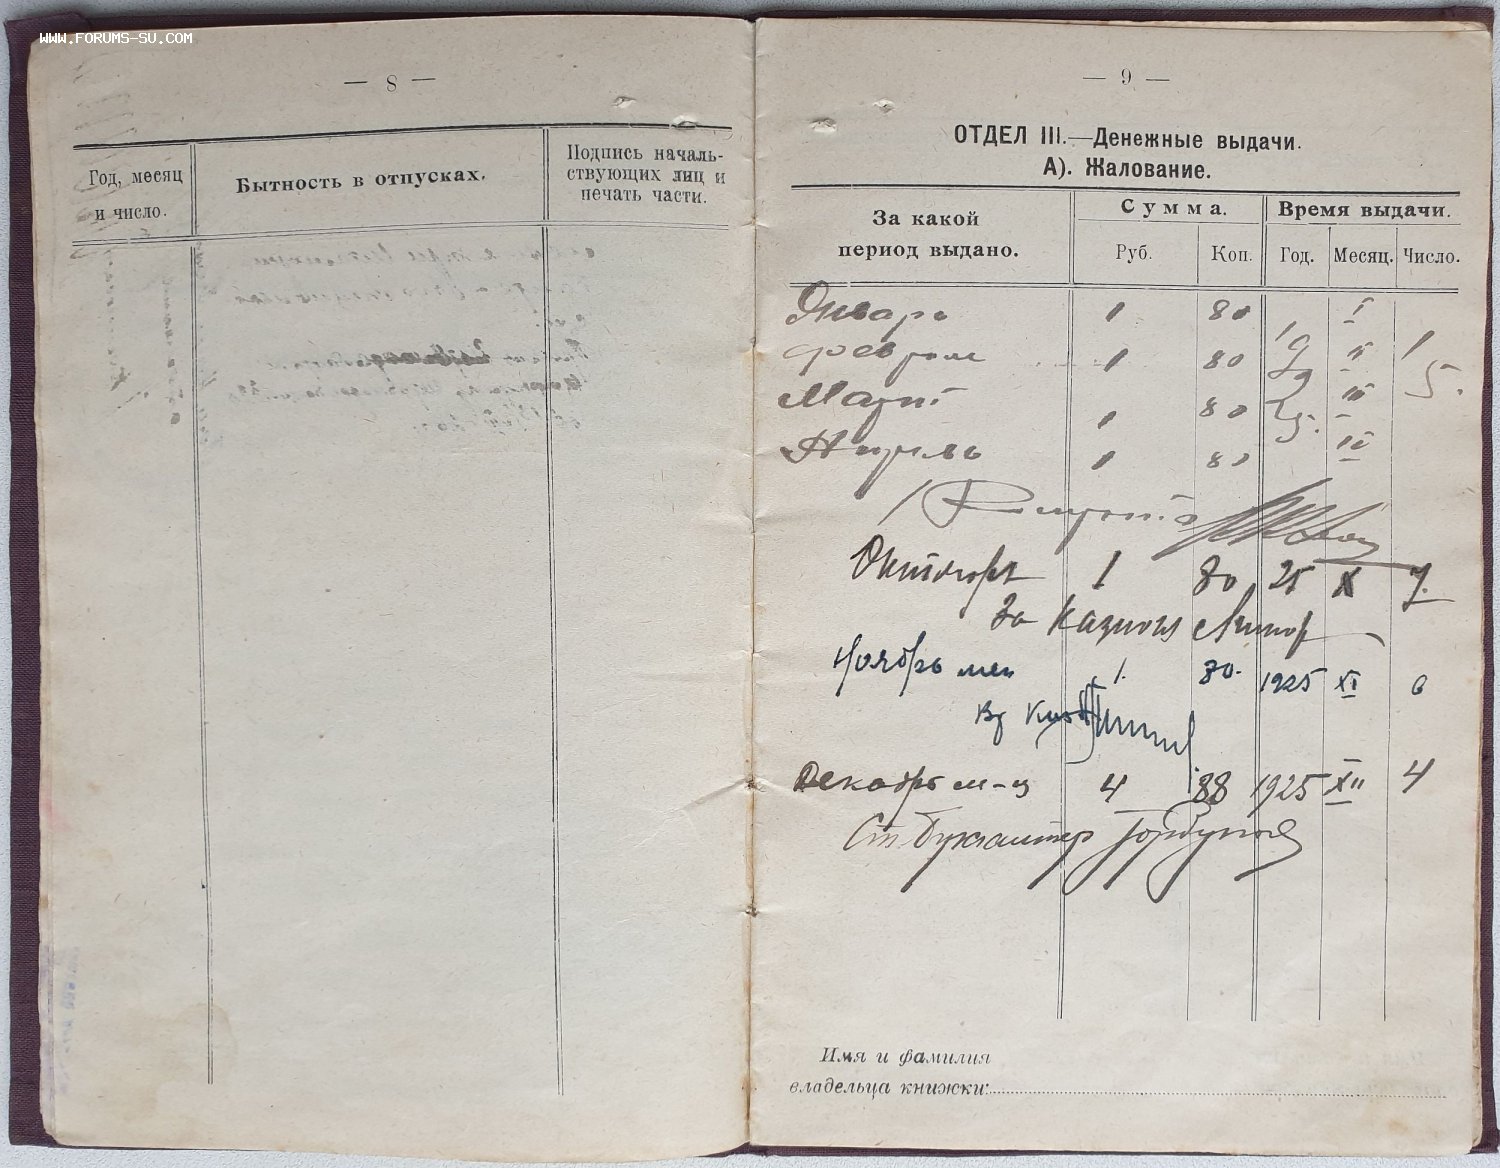 WWW.FORUMS-SU.COM
— 8 —
Год, месяц и число.
Бытность в отпусках.
Подпись началь-
ствующих лиц и
печать части.
— 9 —
ОТДЕЛ III.—Денежные выдачи.
А). Жалование.
За какой
период выдано.
Сумма.
Время выдачи.
Руб. Коп. Год. Месяц. Число.
Январь 1 80 I
Февраль 1 80 II
Март 1 80 III
Апрель 1 80 IV
1925 15.
Октябрь 1 80 25 X 7.
За Казнач
Ноябрь мец 1. 80. 1925 XI 6
Декабрь м-ц 4 88 1925 XII 4
Ст Бухгалтер Горбунов
Имя и фамилия
владельца книжки: